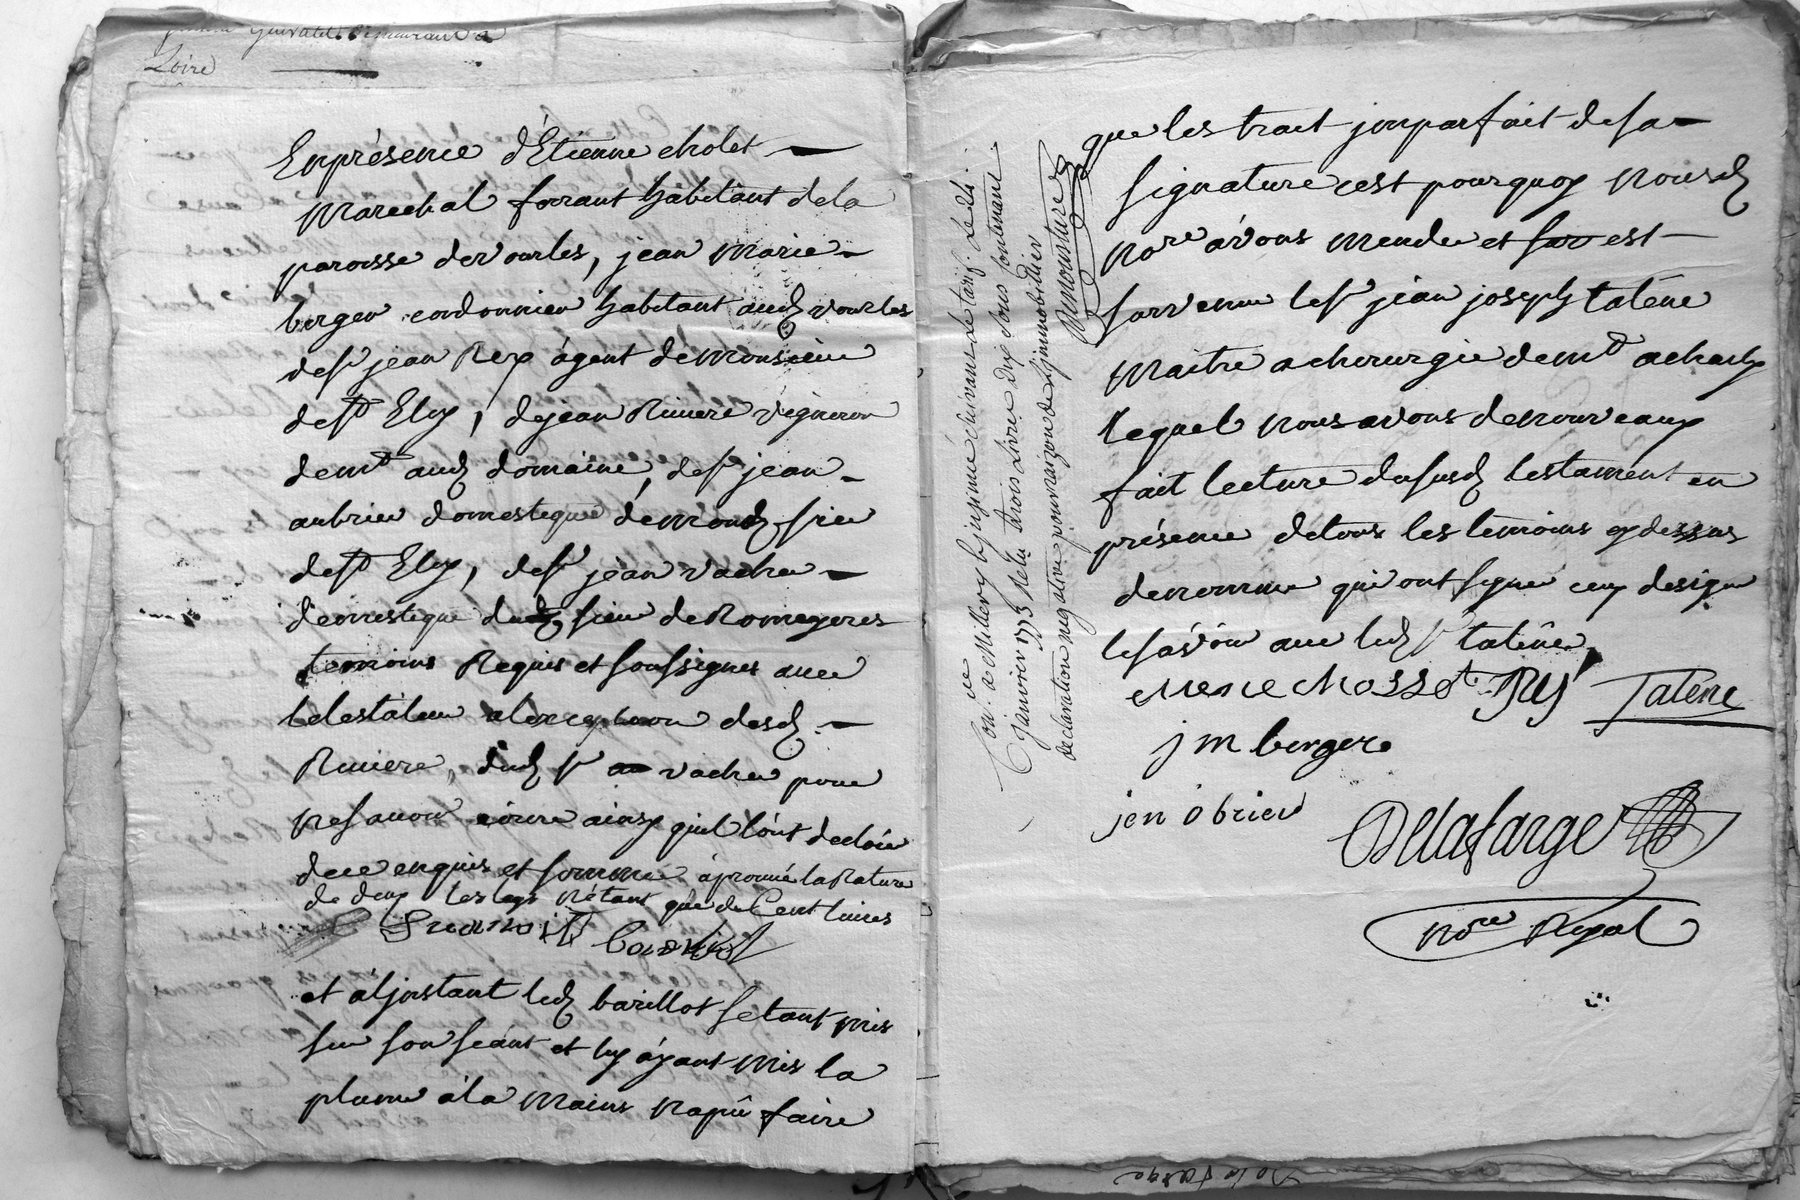 demeurant a
Loire
En présence d'Etienne cholet
marechal ferrant habitant de la
paroisse de vourles, jean marie
berger cordonnier habitant aud vourles
de sr jean Rey agent de monsieur
de st Ely, de jean Riviere vigneron
demt aud domaine, de sr jean
aubrier domestique de mond sieur
de st Ely, de sr jean vacher
domestique dud sieur de Romeyeres
temoins Requis et soussignes avec
le testateur a lexception desd
Riviere, dud sr vacher pour
ne savoir ecrire ainsy quil lont declaré
de ce enquis et sommé aprouvé la Rature
de deux les legs n'étant que de Cent livres
et a l'jnstant led barillot setant mis
sur son seant et luy ayant mis la
plume a la mains na pu faire
que les trait jmparfait de sa
signature cest pourquoy nous d
nore avons mendé et est
survenu le sr jean joseph talene
maitre a chirurgie demt a charly
lequel nous avons de nouveaux
fait lecture du susd testament en
présence de tous les temoins cy dessus
denommé qui ont signé ceux de signé
le savoir avec led sr talene
Rey Talene
j m berger
jen obrier
Delafarge
nore Royal
Con. à Millery le
janvier 1773 Reçu trois livres dix sous contenant
declaration negative pour raizon de l'jmmobillier